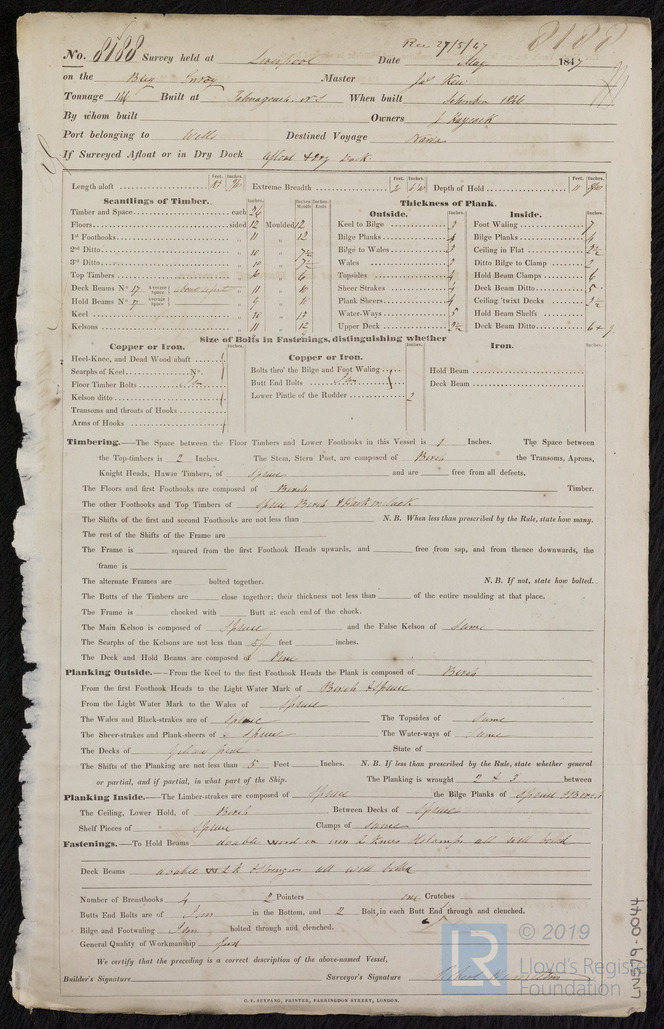 Rec 27/5/47
8188
No. 8188 Survey held at Liverpool Date May 1847
on the Brig Envoy Master Jas Kew
Tonnage 144 Built at Tatmagouche N.S When built 1846
By whom built Owners J Haycock
Port belonging to Wells Destined Voyage
If Surveyed Afloat or in Dry Dock Afloat & Dry Dock
Feet. Inches. Feet. Inches. Feet. Inches.
Length aloft Extreme Breadth Depth of Hold 11
Scantlings of Timber. Inches. Inches Mould Inches Ends Thickness of Plank.
Outside. Inches. Inside. Inches.
Timber and Space each 24 Keel to Bilge 3 Foot Waling
Floors sided 12 Moulded 12 Bilge Planks 4 Bilge Planks 4
1st Foothooks 11 „ 12 Bilge to Wales 3 Ceiling in Flat 2½
2nd Ditto 10 „ 7½ Wales 3 Ditto Bilge to Clamp 2
3rd Ditto „ 7½ Topsides 4 Hold Beam Clamps 6
Top Timbers 6 „ 6 Sheer Strakes 4 Deck Beam Ditto 5
Deck Beams No 17 Average Space „ 11 „ 10 Plank Sheers 4 Ceiling 'twixt Decks 2½
Hold Beams No 9 Average Space „ 9 „ Water-Ways 5 Hold Beam Shelfs
Keel „ 10 „ 12 Upper Deck 2½ Deck Beam Ditto 6 +
Kelsons „ 11 „ 12
Size of Bolts in Fastenings, distinguishing whether
Copper or Iron. Inches. Copper or Iron. Inches. Iron. Inches.
Heel-Knee, and Dead Wood abaft 1
Scarphs of Keel No.
Floor Timber Bolts Iron
Kelson ditto 1
Transoms and throats of Hooks
Arms of Hooks 1
Bolts thro' the Bilge and Foot Waling
Butt End Bolts Iron
Lower Pintle of the Rudder 2
Hold Beam
Deck Beam
Timbering.—The Space between the Floor Timbers and Lower Foothooks in this Vessel is 1 Inches. The Space between
the Top-timbers is 2 Inches. The Stem, Stern Post, are composed of Birch the Transoms, Aprons,
Knight Heads, Hawse Timbers, of Spruce and are free from all defects.
The Floors and first Foothooks are composed of Birch Timber.
The other Foothooks and Top Timbers of Spruce Birch & Hackmatack
The Shifts of the first and second Foothooks are not less than N. B. When less than prescribed by the Rule, state how many.
The rest of the Shifts of the Frame are
The Frame is squared from the first Foothook Heads upwards, and free from sap, and from thence downwards, the
frame is
The alternate Frames are bolted together. N. B. If not, state how bolted.
The Butts of the Timbers are close together; their thickness not less than of the entire moulding at that place.
The Frame is chocked with Butt at each end of the chock.
The Main Kelson is composed of Spruce and the False Kelson of Same
The Scarphs of the Kelsons are not less than 5/ feet inches.
The Deck and Hold Beams are composed of Pine
Planking Outside.—From the Keel to the first Foothook Heads the Plank is composed of Birch
From the first Foothook Heads to the Light Water Mark of Birch & Spruce
From the Light Water Mark to the Wales of Spruce
The Wales and Black-strakes are of Spruce The Topsides of Same
The Sheer-strakes and Plank-sheers of Spruce The Water-ways of Same
The Decks of Yellow pine State of
The Shifts of the Planking are not less than 5 Feet Inches. N. B. If less than prescribed by the Rule, state whether general
or partial, and if partial, in what part of the Ship. The Planking is wrought 2 & 3 between
Planking Inside.—The Limber-strakes are composed of Spruce the Bilge Planks of Spruce & Birch
The Ceiling, Lower Hold, of Birch Between Decks of Spruce
Shelf Pieces of Spruce Clamps of same
Fastenings.—To Hold Beams double wood or iron 2 Knees all well bolted
Deck Beams double & Stringers all well bolted
Number of Breasthooks 4 2 Pointers one Crutches
Butts End Bolts are of Iron in the Bottom, and 2 Bolt, in each Butt End through and clenched.
Bilge and Footwaling Iron bolted through and clenched.
General Quality of Workmanship good
We certify that the preceding is a correct description of the above-named Vessel,
Builder's Signature Surveyor's Signature
C. F. SEYFANG, PRINTER, FARRINGDON STREET, LONDON.
LR © 2019
Lloyd's Register
Foundation
LNS79-0044